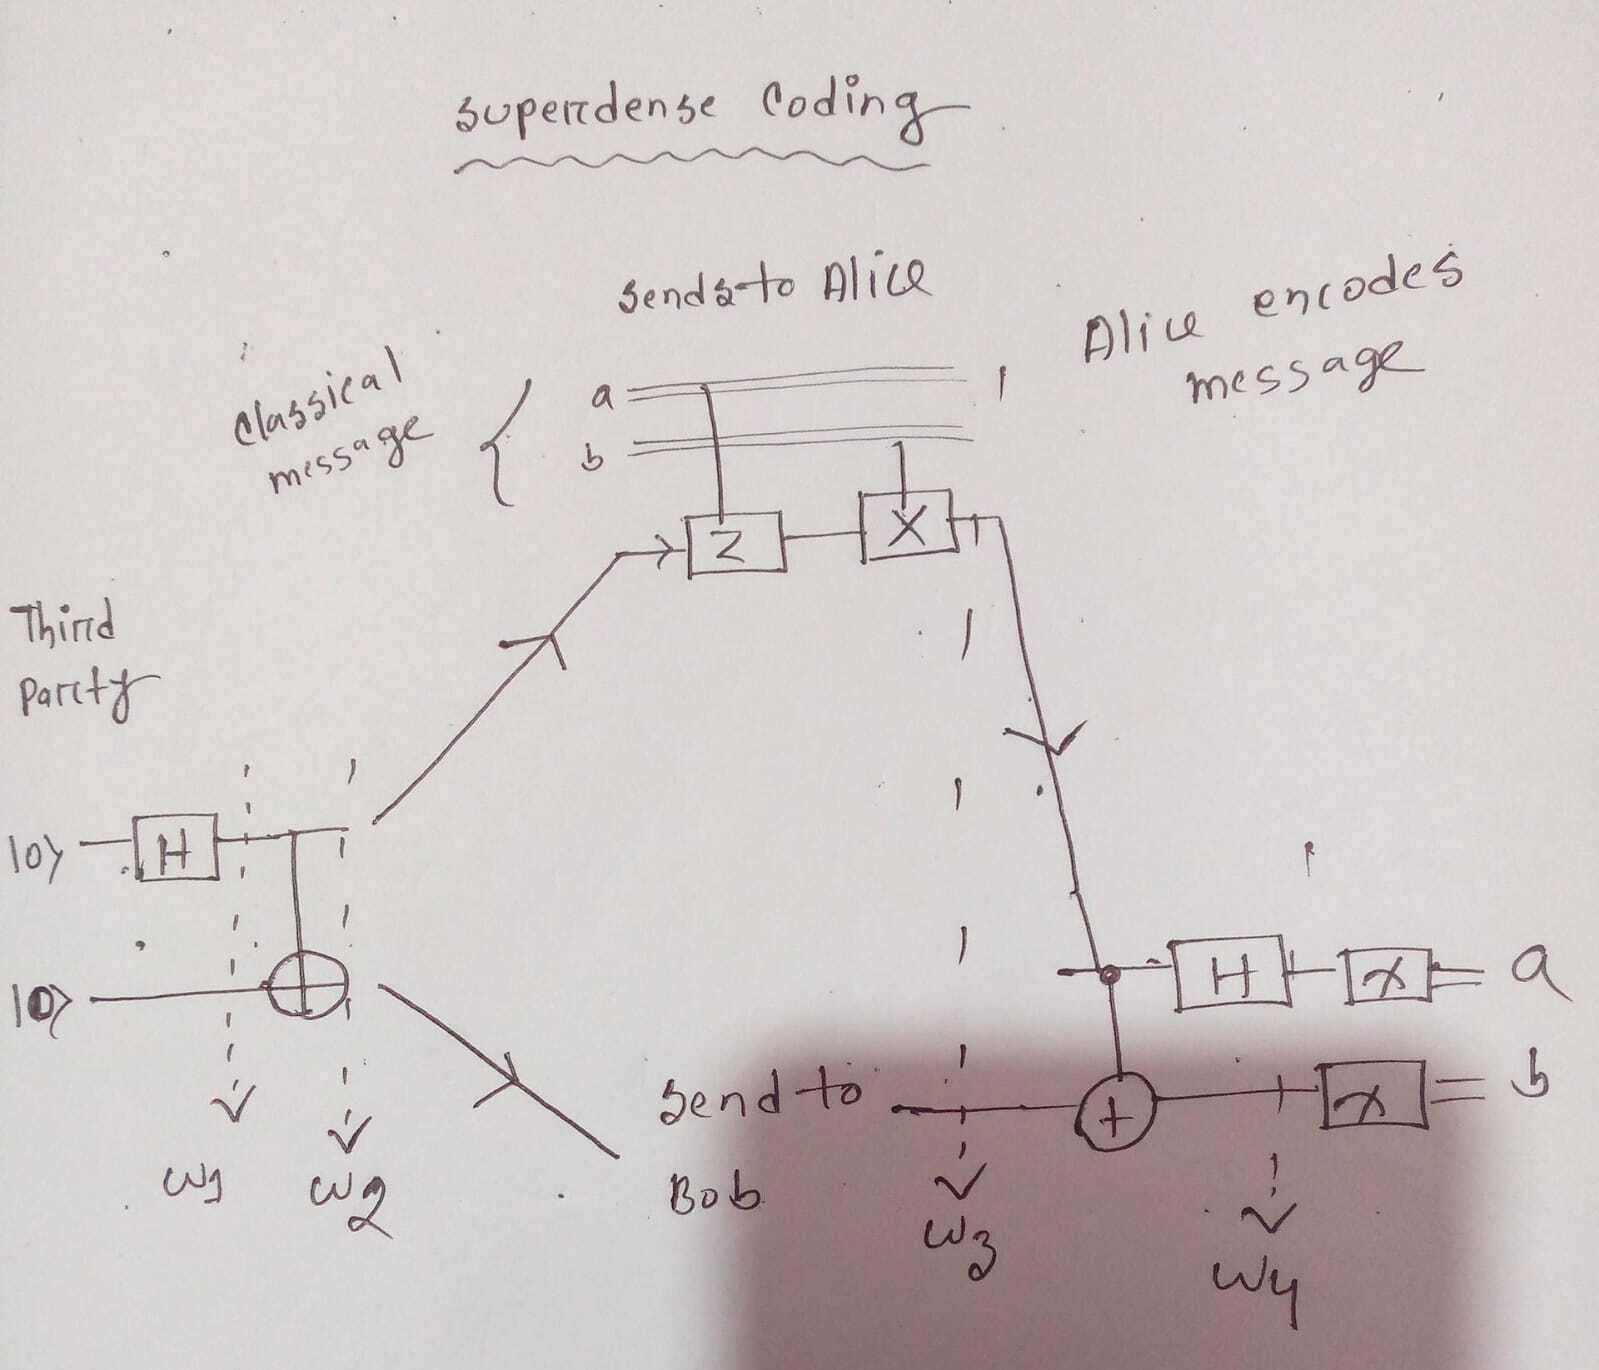 superdense Coding
sends to Alice
Alice encodes
message
Classical
message
a
b
Z
X
Third
Party
|0⟩
H
|0⟩
H
X
a
Send to
Bob
X
b
W1
W2
W3
W4